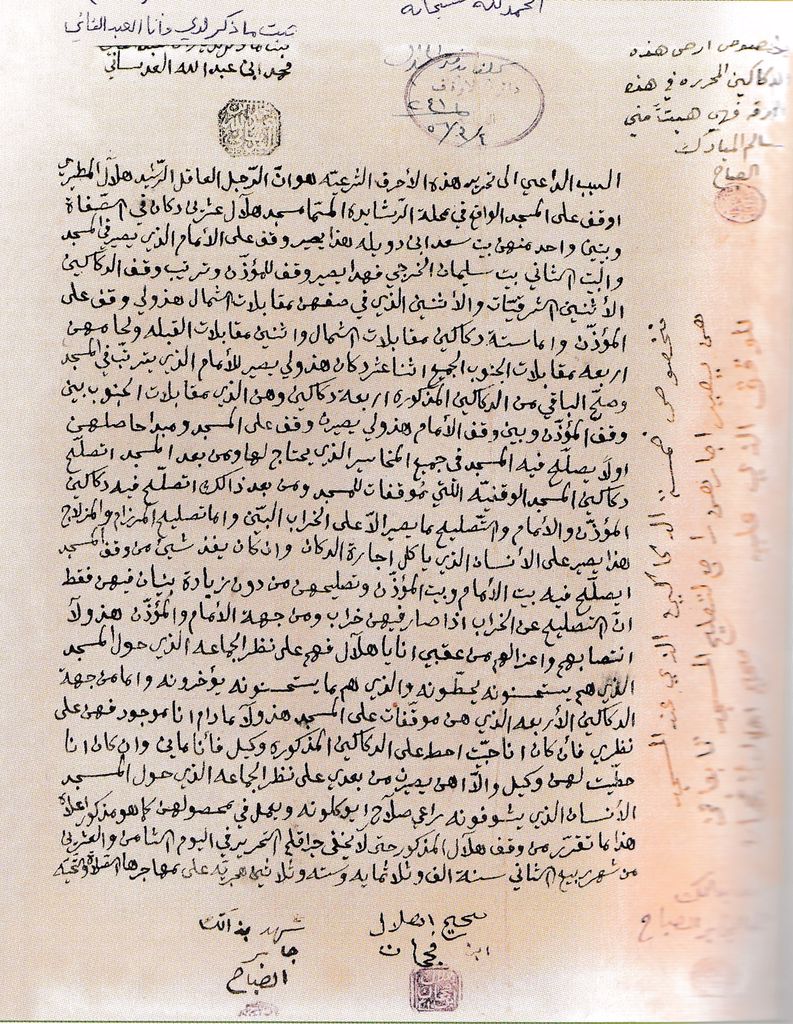 الحمد لله سبحانه
ثبت ما ذكر لدي وأنا العبد الفاني
محمد ابن عبد الله العدساني
بخصوص ارض هذه
الدكاكين المحرره في هذه
الورقه فهي هبتاً مني
سالم المبارك
الصباح
السبب الداعي الى تحرير هذه الأحرف الشرعيّه هو انّ الرّجل العاقل الرّشيد هلال المطيري
اوقف على المسجد الواقع في محلة الرّشايده المسمّا مسجد هلال عشرين دكان في الصّفاة
وبيتين واحد منهن بيت سعد ابن دويله هذا يصير وقف على الأمام الذي يصير في المسجد
والبيت الثاني بيت سليمان الخرجي فهذا يصير وقف للمؤذّن وترتيب وقف الدكاكين
الأثنين الشرقيّات والأثنين الذي في صفهن مقابلات الشمال هذولي وقف على
المؤذّن واما ستة دكاكين مقابلات الشمال واثنين مقابلات القبله ولحامهن
اربعه مقابلات الجنوب الجميع اثنا عشر دكان هذولي يصير للأمام الذي يترتّب في المسجد
وصحّ الباقي من الدكاكين المذكوره اربعة دكاكين وهن الذي مقابلات الجنوب بين
وقف المؤذّن وبين وقف الأمام هذولي يصيرن وقف على المسجد ومبدا حاصلهن
اولاً يصلّح فيه المسجد في جميع المخاسير الذي يحتاج لها ومن بعد المسجد اتصلّح
دكاكين المسجد الوقفيّه اللّتي موقفات للمسجد ومن بعد ذالك اتصلّح فيه دكاكين
المؤذّن والأمام والتّصليح ما يصير الاّ على الخراب البيّن واما تصليح المرزام والمزلاج
هذا يصير على الأنسان الذي ياكل اجارة الدكان وان كان يفذ شيئ من وقف المسجد
ايصلّح فيه بيت الأمام وبيت المؤذّن وتصليحهن من دون زيادة بنيان فيهن فقط
انّ التصليح عن الخراب اذا صار فيهن خراب ومن جهة الأمام والمؤذّن هذولا
انتصابهم واعزالهم من عقبي انا يا هلال فهم على نظر الجماعه الذي حول المسجد
الذي هم يستحسنونه يحطّونه والذي هم ما يستحسنونه يؤخرونه واما من جهة
الدكاكين الأربعه الذي هن موقّفات على المسجد هذولا ما دام انا موجود فهن على
نظري فأن كان انا حبّيت احط على الدكاكين المذكوره وكيل فأنا ماني وان كان انا
حطّيت لهن وكيل والاّ اهن يصيرن من بعدي على نظر الجماعه الذي حول المسجد
الأنسان الذي يشوفونه راعي صلاح ايوكلونه ويعمل في محصولهن كما هو مذكور اعلاه
هذا ما تقرّر من وقف هلال المذكور حتى لا يخفى جرا قلم التحرير في اليوم الثامن والعشرين
من شهر ربيع الثاني سنة الف وثلاثمايه وسته وثلاثين هجريّه على مهاجرها الصّلاة والتحيّه
صحيح اهلال
ابن فجحان
شهد بذالك
جابر
الصباح
بخصوص خمسة الدكاكين الذي عند المسجد
هن يصير اجارهن
للوقف الذي عليه